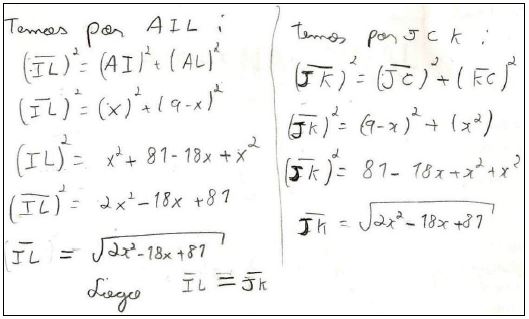 Temos por AIL :
(I̅L̅)² = (AI)² + (AL)²
(I̅L̅)² = (x)² + (9-x)²
(IL)² = x² + 81 - 18x + x²
(I̅L̅)² = 2x² - 18x + 81
I̅L̅ = √2x² - 18x + 81
Logo I̅L̅ ≡ J̅K̅
temos por JCK :
(J̅K̅)² = (J̅C̅)² + (K̅C̅)²
(J̅K̅)² = (9-x)² + (x²)
(J̅K̅)² = 81 - 18x + x² + x²
J̅K̅ = √2x² - 18x + 81